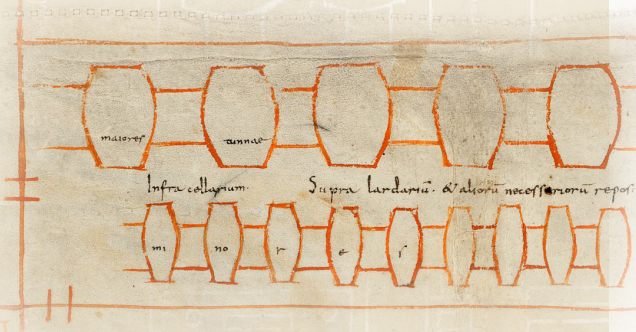 maiores tunnae
Infra cellarium. Supra lardariū. & aliorū necessariorū repos
mi no r e s